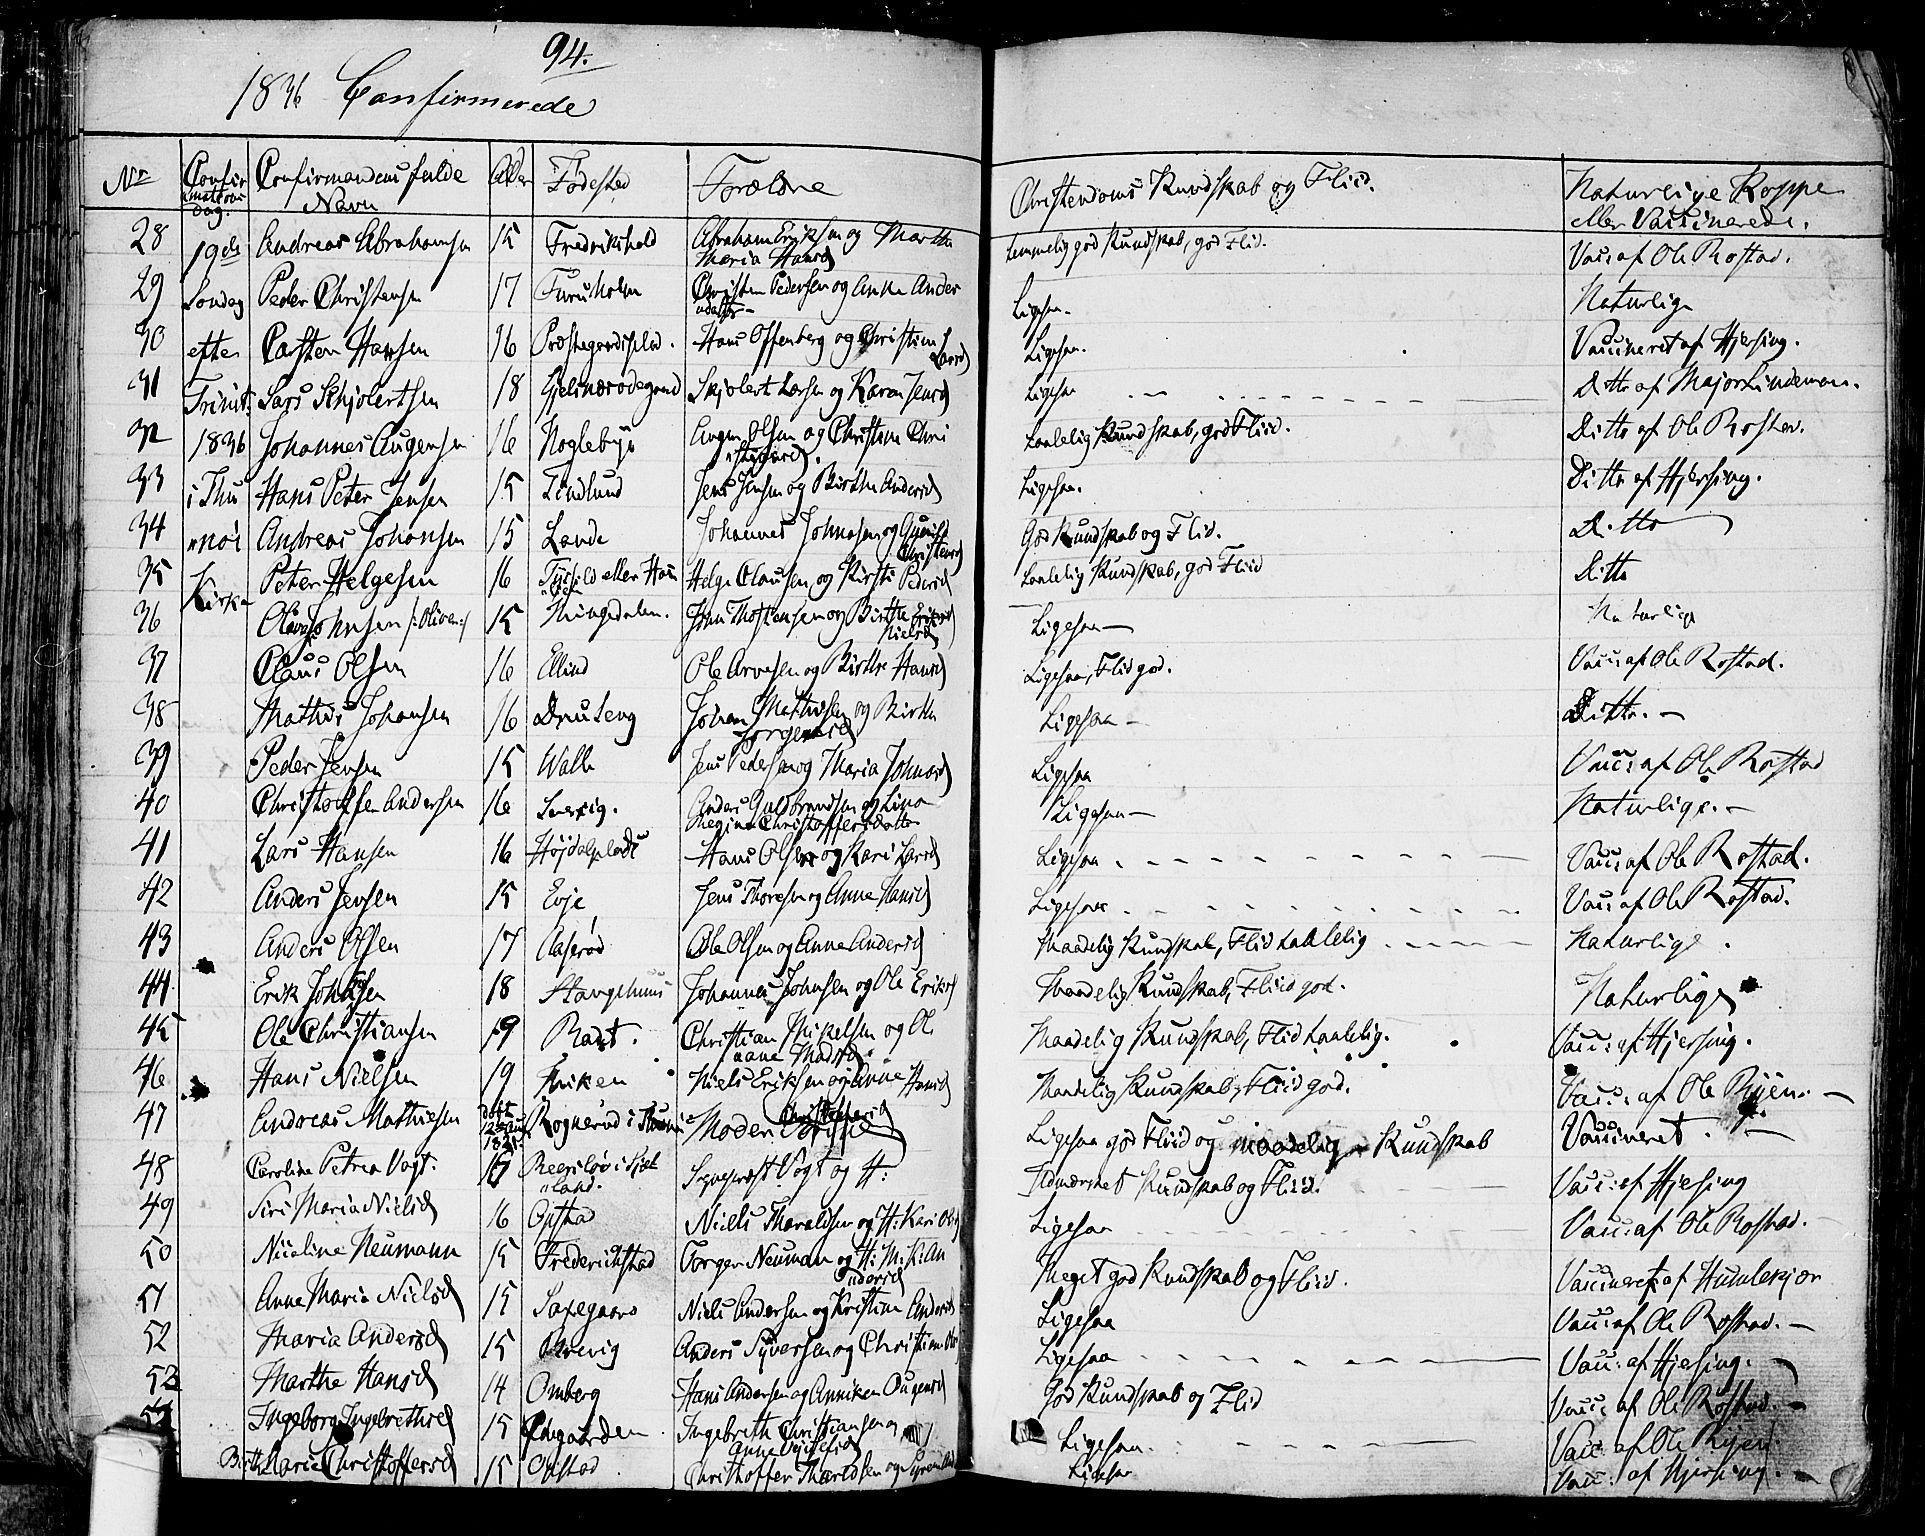 94.
1836 Confirmerede
Nr Confirmations Dag. Confirmandens fulde Navn Alder Fødested Forældre Christendoms Kundskab og Fliid. Naturlige Kopper eller Vaccinerede.
28 19de Andreas Abrahamsen 15 Fredrikshald Abraham Eriksen og Marthe Maria Hansd temmelig god Kundskab, god Flid. Vacc: af Ole Rostad.
29 Søndag Peder Christensen 17 Furuholm Christen Pedersen og Anne Andersdatter Ligesaa. Naturlige
30 efter Carsten Hansen 16 Præstegaardspld. Hans Offenberg og Christine Larsd Ligesaa. Vaccineret af Hjersing.
31 Trinit: Lars Schjolertsen 18 Skjolert Larsen og Karen Jensd Ligesaa Ditto af Major Lindeman.
32 1836 Johannes Augensen 16 Noglebye Augen Olsen og Christine Chri taalelig Kundskab, god Fliid. Ditto af Ole Rosted.
33 i Thu Hans Peter Jensen 15 Lindlund Jens Jensen og Birthe Andersd Ligesaa. Ditto af Hjersing.
34 "nøi Andreas Johansen 15 Lande Johannes Johnasen og Christensd God Kundskab og Flid. Ditto
35 Kirke Peter Helgesen 16 eller Hau Helge Clausen og Kirsti Pedersd taalelig Kundskab, god Fliid Ditto
36 Johnsen /: Oliver :/ 15 Ringsdalen. og Birthe Nielsd Ligesaa Naturlige
37 Claus Olsen 16 Ellind Ole Arvesen og Birthe Hansd Ligesaa, Flid god. Vacc: af Ole Rostad.
38 Mathis Johansen 16 Johan Mathisen og Birthe Jørgensd Ligesaa Ditto.
39 Peder Jensen 15 Walle Jens Pedersen og Maria Johnasd Ligesaa Vacc: af Ole Rostad
40 Christoffer Andersen 16 Anders Guldbrandsen og Lina Regine Christoffersdatter Ligesaa Naturlige.
41 Lars Hansen 16 Højdelplads Hans Olsen og Kari Larsd Ligesaa Vacc: af Ole Rostad.
42 Anders Jensen 15 Evje Jens Thoresen og Anne Hansd Ligesaa Vacc: af Ole Rostad.
43 Anders Olsen 17 Aaserød Ole Olsen og Anne Andersd Maadelig Kundskab, Flid taalelig Naturlige.
44 Erik Johnsen 18 Stangehuus Johannes Johnsen og Ole Eriksd Maadelig Kundskab, Fliid god. Naturlige
45 Ole Christiansen 19 Rat. Christian Mikelsen og Ole aane Madsd. Maadelig Kundskab, Flid taalelig. Vacc: af Hjersing.
46 Hans Nielsen 19 Niels Eriksen og Anne Hansd Maadelig Kundskab, Fliid god. Vacc: af Ole Ryen.
47 Andreas Mathiesen døbt 1821 Rognerød i Moder Ligesaa god Fliid og maadelig Kundskab Vaccineret.
48 Caroline Petrea Vogt. 17 i Sjel "land. Sogneprest Vogt og H: Udmærket Kundskab og Fliid. Vacc: af Hjersing
49 Siri Maria Nielsd 16 Opstad Niels Tharaldsen og H: Kari Olsd Ligesaa Vacc: af Ole Rostad.
50 Nicoline Neumann 15 Frederichstad Jørgen Neuman og H: M: K: An "dersd Meget god Kundskab og Fliid. Vaccineret af Humlekjær
51 Anne Maria Nielsd 15 Saxegaard Niels Andersen og Kristine Andersd Ligesaa Vacc: af Ole Rostad.
52 Maria Andersd 15 Krevig Anders Syversen og Christine Olsd Ligesaa Vacc: af Hjersing.
53 Marthe Hansd 14 Omberg Hans Andersen og Anniken Augensd God Kundskab og Flid Vacc: af Ole Rostad.
54 Ingeborg Ingebrethsd 15 Ingebreth Christiansen og Anne Ligesaa. Vacc: af Ole Ryen.
Birthe Marie Christoffersd 15 Opstad Christoffer Thorldsen og Ligesaa Vacc: af Hjersing.